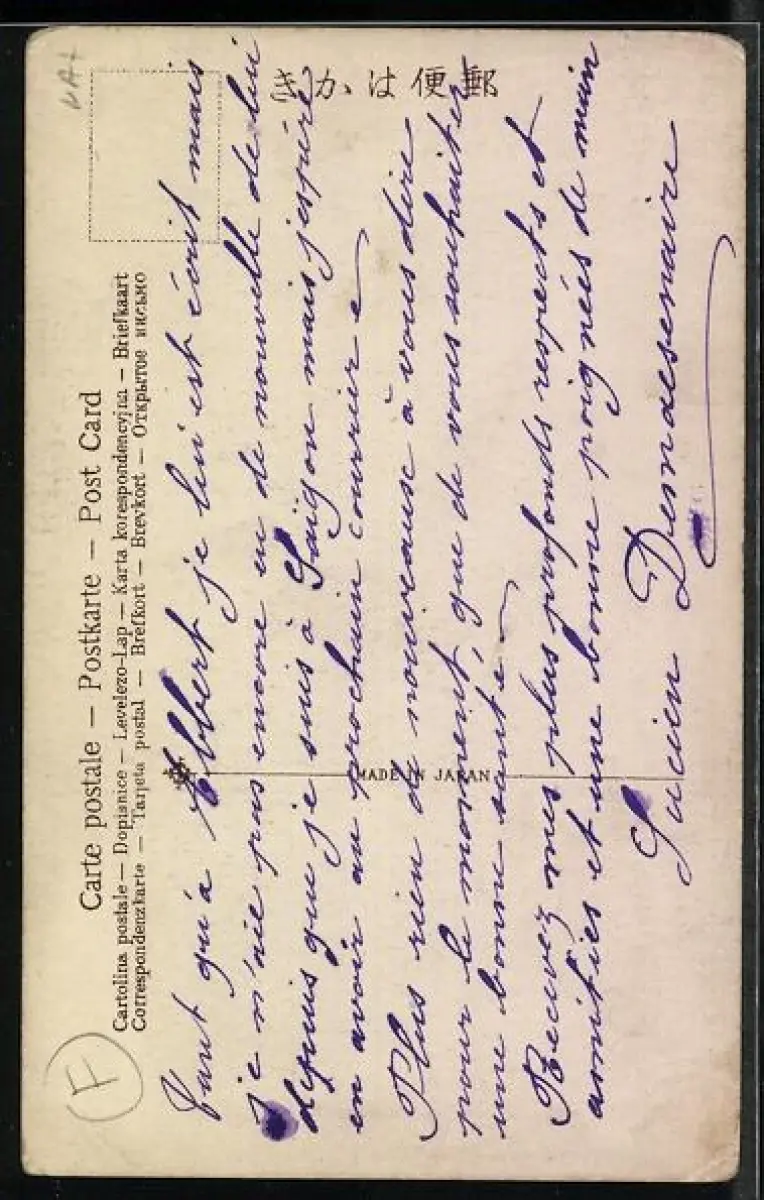 きかは便郵
Carte postale — Postkarte — Post Card
Cartolina postale — Dopisnice — Levelezo-Lap — Karta korespondencyjna — Briefkaart
Correspondenzkarte — Tarjeta postal — Brefkort — Brevkort — Открытое письмо
MADE IN JAPAN
F
Tant qu'a Albert je lui est écrit mais
je n'aie pas encore eu de nouvelle de lui
depuis que je suis à Saïgon mais j'espère
en avoir au prochain courrier
Plus rien de nouveause à vous dire
pour le moment, que de vous souhaiter
une bonne santé
Recevez mes plus profonds respects et
amitiés et une bonne poignées de main
Lucien